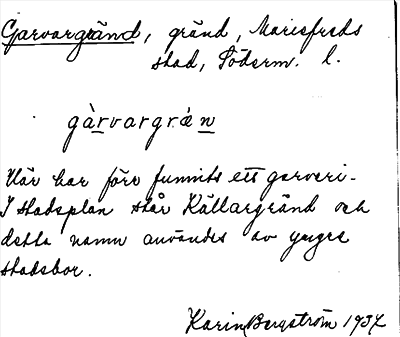 Garvargränd, gränd, Mariefreds
stad, Söderm. l.
gàrvargrä́n
Här har förr funnits ett garveri.
I stadsplan står Källargränd och
detta namn användes av yngre
stadsbor.
Karin Bergström 1937